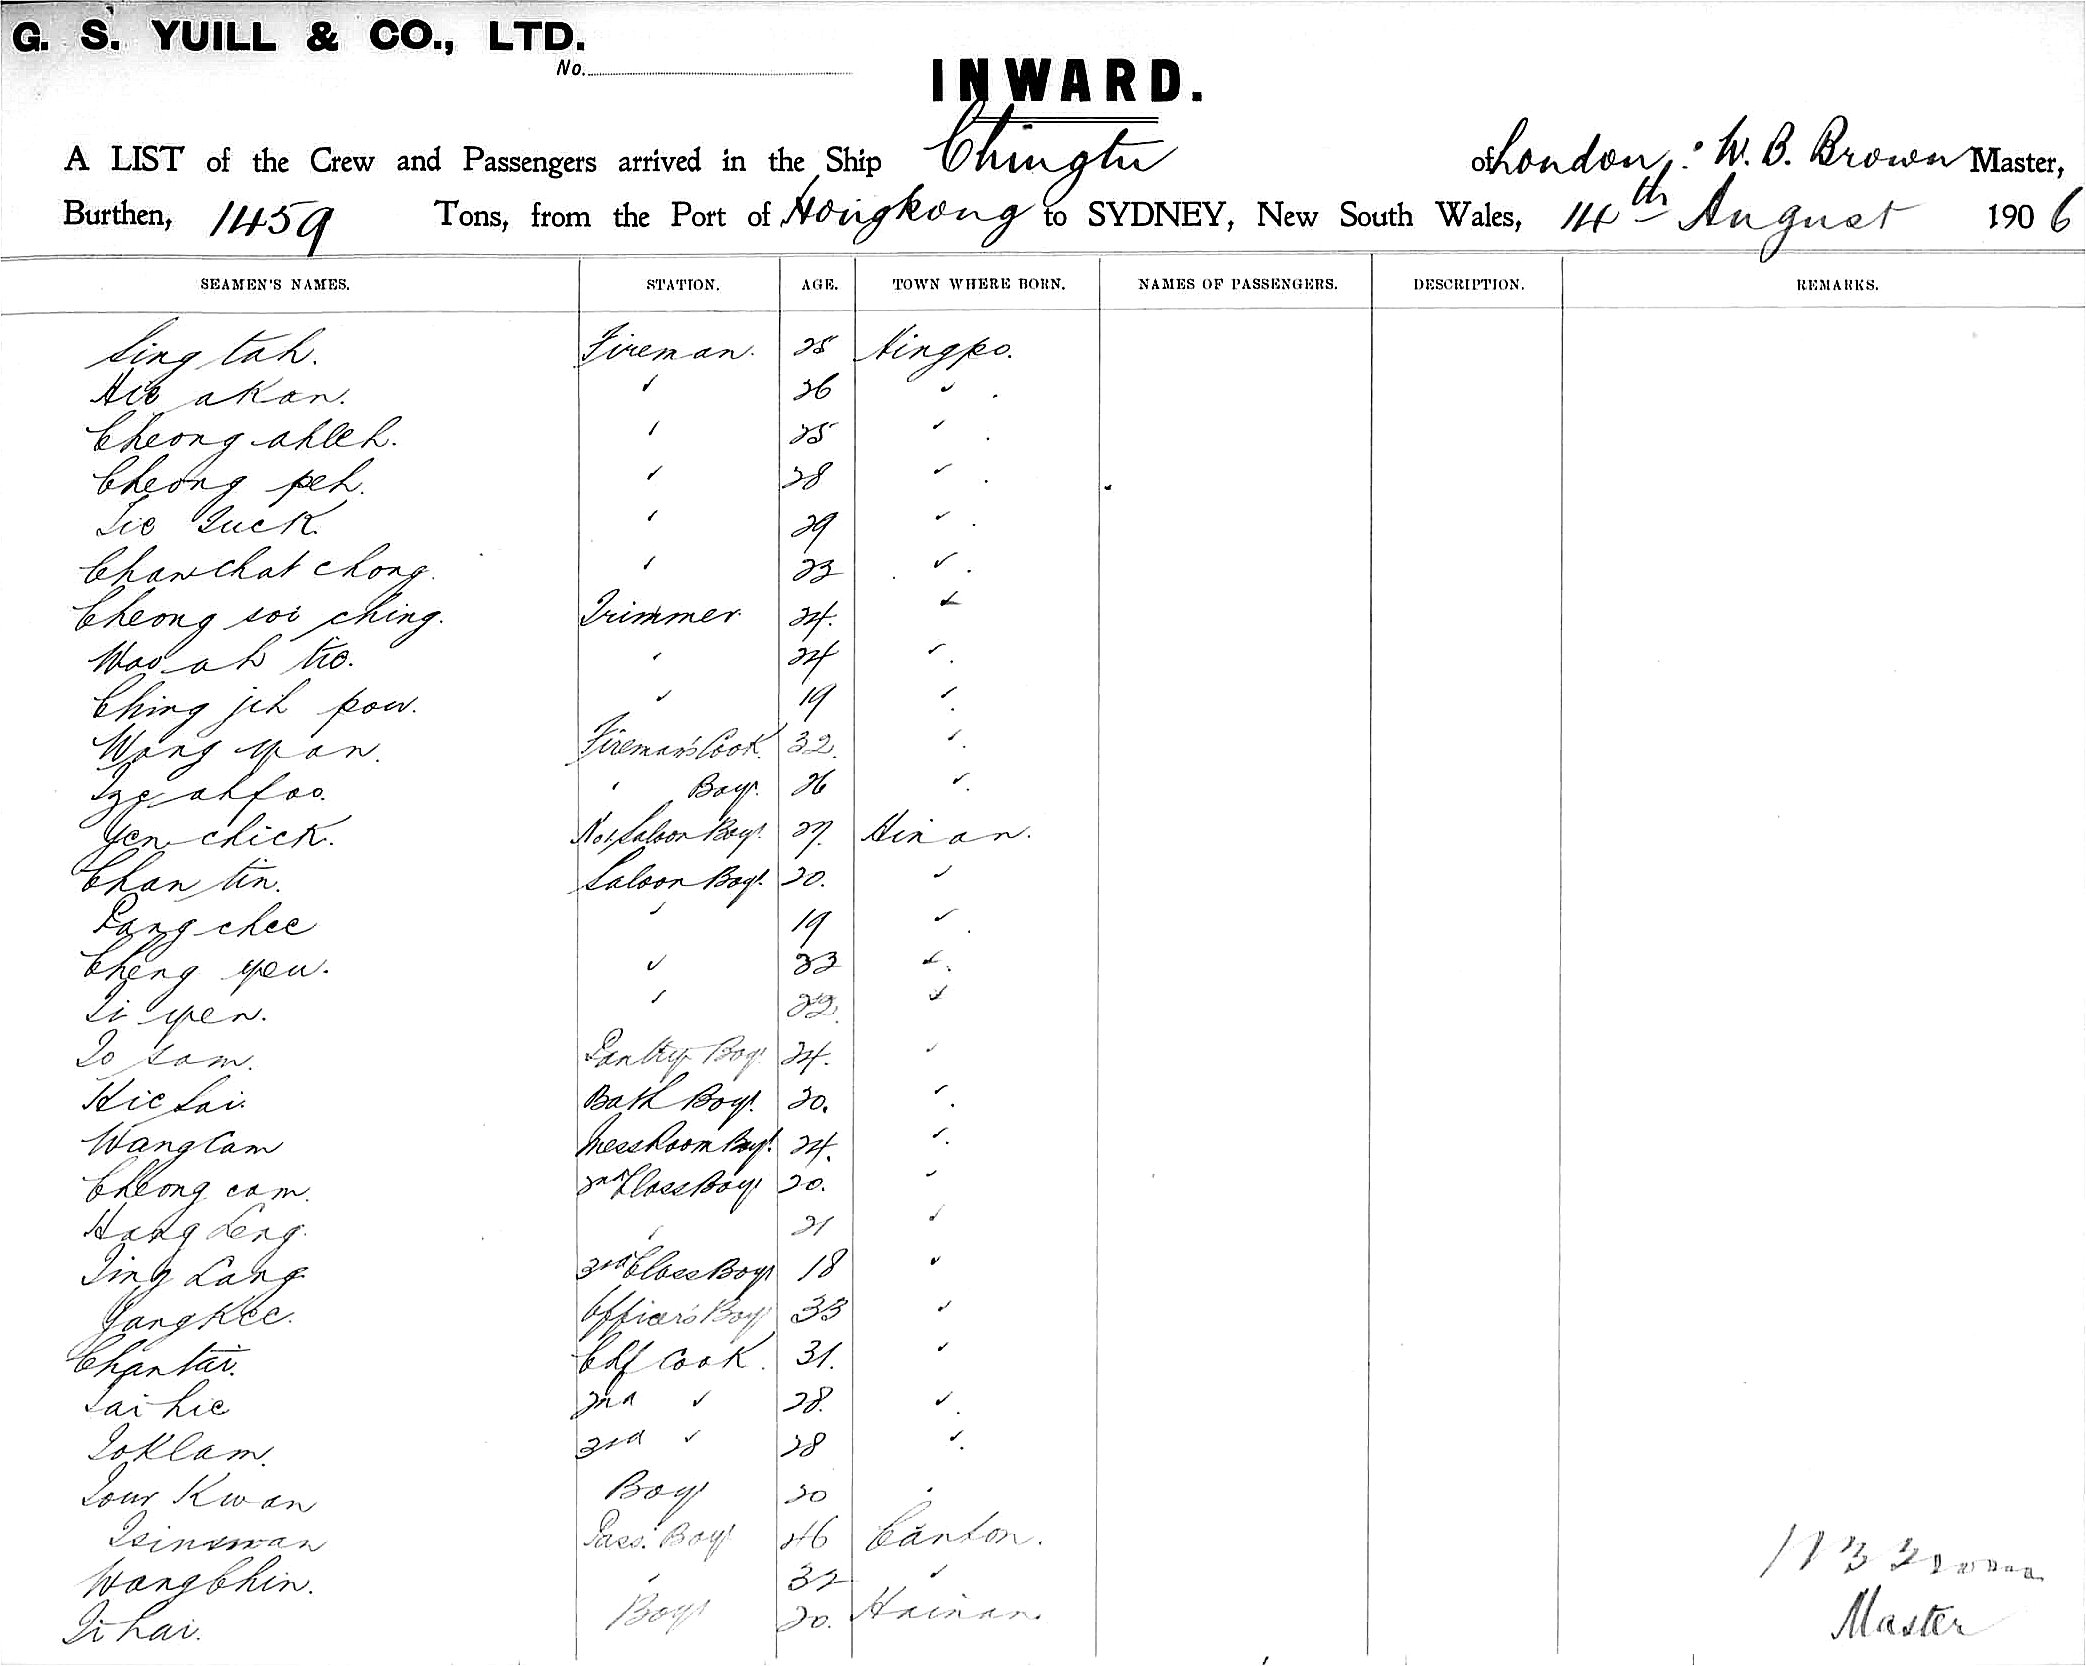 G. S. YUILL & CO., LTD.
No.
INWARD.
A LIST of the Crew and Passengers arrived in the Ship Chingtu of London, : W. B. Brown Master,
Burthen, 1459 Tons, from the Port of Hongkong to SYDNEY, New South Wales, 14th August 1906
SEAMEN'S NAMES. STATION. AGE. TOWN WHERE BORN. NAMES OF PASSENGERS. DESCRIPTION. REMARKS.
Sing tah. Fireman. 25 Ningpo.
akan. " 26 "
Cheong ahleh. " 25 "
Cheong peh. " 28 "
" 29 "
Chaw chat chong. " 23 "
Cheong soi ching. Trimmer 24. "
Woo ah tie. " 24 "
Ching jih pow. " 19 "
Wong yan. Fireman's Cook. 32. "
Tze ahfoo. " Boy. 26 "
Yen chick. No 1, Saloon Boy. 27. Hinan.
Chan tin. Saloon Boy. 20. "
Pang chee " 19 "
Cheng yeu. " 23 "
Li yen. " 22. "
To sam. Pantry Boy 24. "
Hie Sai. Bath Boy. 20. "
Wang Cam Mess Room Boy. 24. "
Cheong cam. 2nd Class Boy 20. "
Hang Leng. " 21 "
Ting Lang 3rd Class Boy 18 "
Yang Kee. Officer's Boy 33 "
Chantai. Chf Cook. 31. "
Sai hie 2nd " 28. "
Toklam. 3rd " 28 "
Tour Kwan Boy 20 "
Tsinswan Pass. Boy 46 Canton.
Wong Chin. " 32 "
Li hai. Boy 20. Hainan.
W B Brown
Master